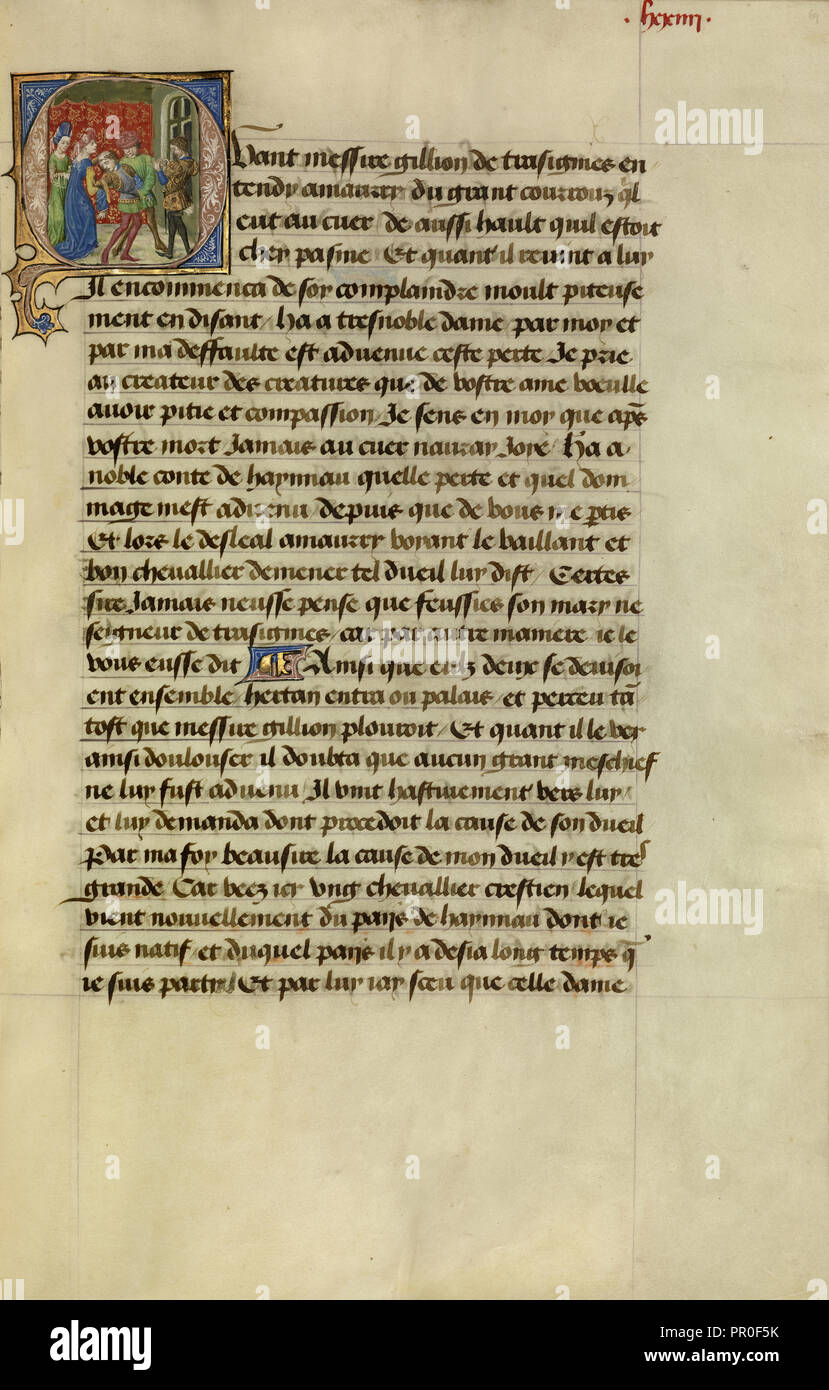 Quant messire gillion de trasignies en
tendy amaurry du grant courrouz ql
eut au cuer de aussi hault quil estoit
chey pasme Et quant il revint a luy
Il encommenca de soy complaindre moult piteuse
ment en disant / ha a tresnoble dame par moy et
par ma deffaulte est advenue ceste perte Je prie
au createur des creatures que de vostre ame voeulle
avoir pitie et compassion / Je sens en moy que aps
vostre mort Jamais au cuer nauray Joye / Ha a
noble conte de haynnau quelle perte et quel dom
mage mest advenu depuis que de vous me ptis
Et lors le desleal amaurry voyant le vaillant et
bon chevallier demener tel dueil luy dist / Certes
sire Jamais neusse pense que feussies son mary ne
seigneur de trasignies / car par autre maniere ie le
vous eusse dit Ainsi que eulz deux se devisoi
ent ensemble / hertan entra ou palais / et perceu tā
tost que messire gillion plouroit / Et quant il le vey
ainsi doulouser il doubta que aucun grant meschief
ne luy fust advenu / Il vint hastivement vers luy /
et luy demanda dont procedoit la cause de son dueil
Par ma foy beau sire la cause de mon dueil y est tres
grande Car veez icy ung chevallier crestien lequel
vient nouvellement du pays de haynnau dont ie
suis natif / et duquel pays il y a desia long temps q̄
ie suis party / Et par luy iay sceu que celle dame
alamy
Image ID: PR0F5K
www.alamy.com